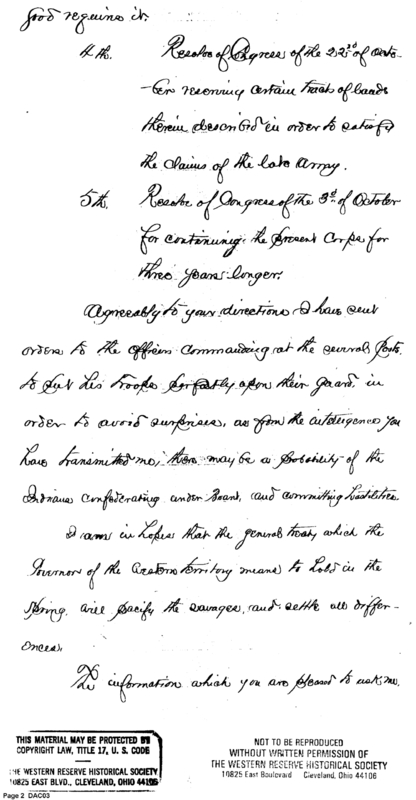 good requires it.
4th. Resolve of Congress of the 22nd of Octo-
-ber reserving certain tracts of lands
therein described in order to satisfy
the claims of the late Army.
5th. Resolve of Congress of the 3d of October
for continuing the present Corps for
three years longer.
Agreeably to your directions I have sent
orders to the officers commanding at the several Posts
to put his troops perfectly upon their guard in
order to avoid surprises, as from the intelligence you
have transmitted me, there may be a probability of the
Indians confederating under Brant, and committing hostilities.
I am in hopes that the general treaty which the
Governor of the Western territory means to hold in the
Spring, will pacify the savages, and settle all differ-
ences.
The information which you are pleased to ask me.
THIS MATERIAL MAY BE PROTECTED BY
COPYRIGHT LAW, TITLE 17, U. S. CODE
THE WESTERN RESERVE HISTORICAL SOCIETY
10825 EAST BLVD., CLEVELAND, OHIO 44106
NOT TO BE REPRODUCED
WITHOUT WRITTEN PERMISSION OF
THE WESTERN RESERVE HISTORICAL SOCIETY
10825 East Boulevard Cleveland, Ohio 44106
Page 2 DAC03